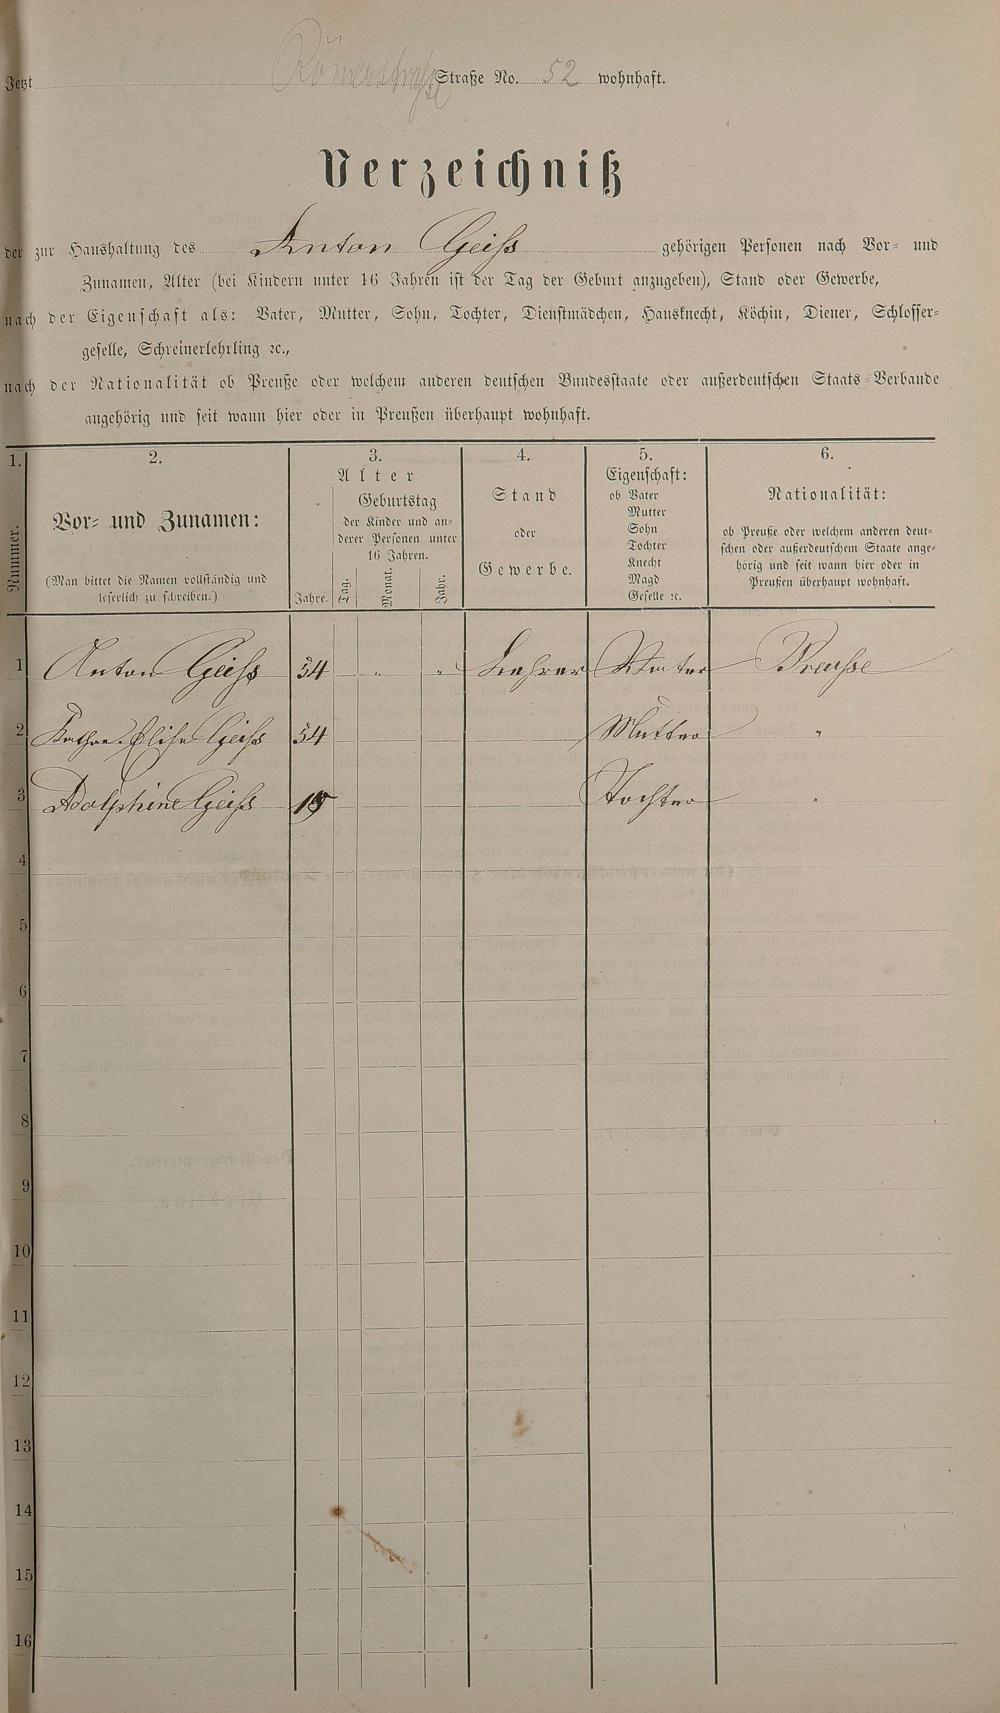 Jetzt Römerstraße Straße No. 52 wohnhaft.
Verzeichniß
der zur Haushaltung des Anton Geiß gehörigen Personen nach Vor- und
Zunamen, Alter (bei Kindern unter 16 Jahren ist der Tag der Geburt anzugeben), Stand oder Gewerbe,
nach der Eigenschaft als: Vater, Mutter, Sohn, Tochter, Dienstmädchen, Hausknecht, Köchin, Diener, Schlosser-
geselle, Schreinerlehrling ꝛc.,
nach der Nationalität ob Preuße oder welchem anderen deutschen Bundesstaate oder außerdeutschen Staats-Verbande
angehörig und seit wann hier oder in Preußen überhaupt wohnhaft.
1.
Nummer.
2.
Vor- und Zunamen:
(Man bittet die Namen vollständig und
leserlich zu schreiben.)
3.
Alter
Geburtstag
der Kinder und an-
derer Personen unter
16 Jahren.
Jahre. Tag. Monat. Jahr.
4.
Stand
oder
Gewerbe.
5.
Eigenschaft:
ob Vater
Mutter
Sohn
Tochter
Knecht
Magd
Geselle ꝛc.
6.
Nationalität:
ob Preuße oder welchem anderen deut-
schen oder außerdeutschem Staate ange-
hörig und seit wann hier oder in
Preußen überhaupt wohnhaft.
1 Anton Geiß 54 " " Lehrer Vater Preuße
2 Kathar. Elise Geiß 54 Mutter "
3 Adolphine Geiß Tochter "
4
5
6
7
8
9
10
11
12
13
14
15
16